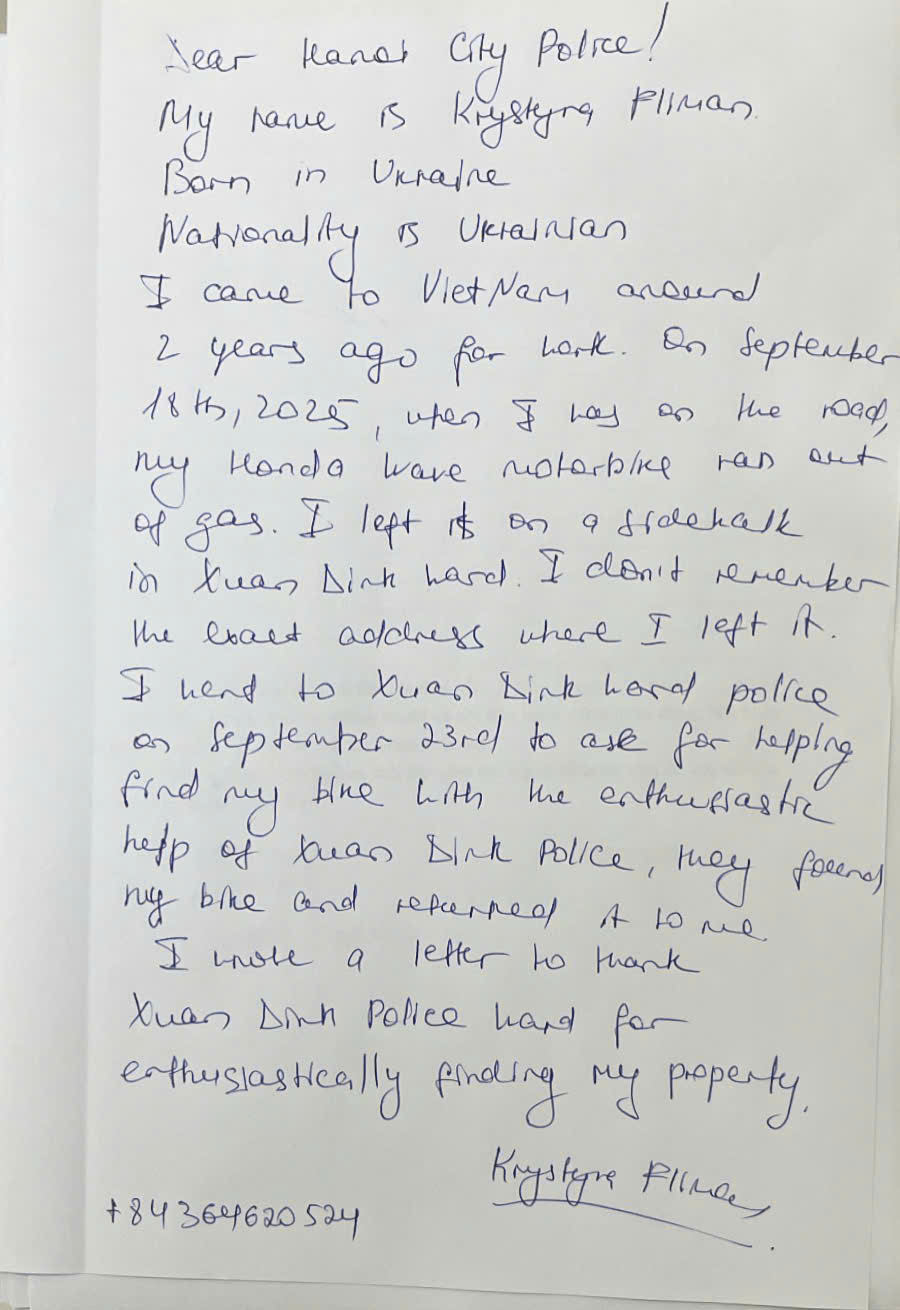 Dear Hanoi City Police!
My name is Krystyna Fliman.
Born in Ukraine
Nationality is Ukrainian
I came to VietNam around
2 years ago for work. On September
18th, 2025, when I was on the road,
my Honda Wave motorbike ran out
of gas. I left it on a sidewalk
in Xuan Dinh ward. I don't remember
the exact address where I left it.
I went to Xuan Dinh ward police
on September 23rd to ask for helping
find my bike with the enthusiastic
help of Xuan Dinh Police, they found
my bike and returned it to me.
I wrote a letter to thank
Xuan Dinh Police ward for
enthusiastically finding my property.
Krystyna Fliman
+84364620524